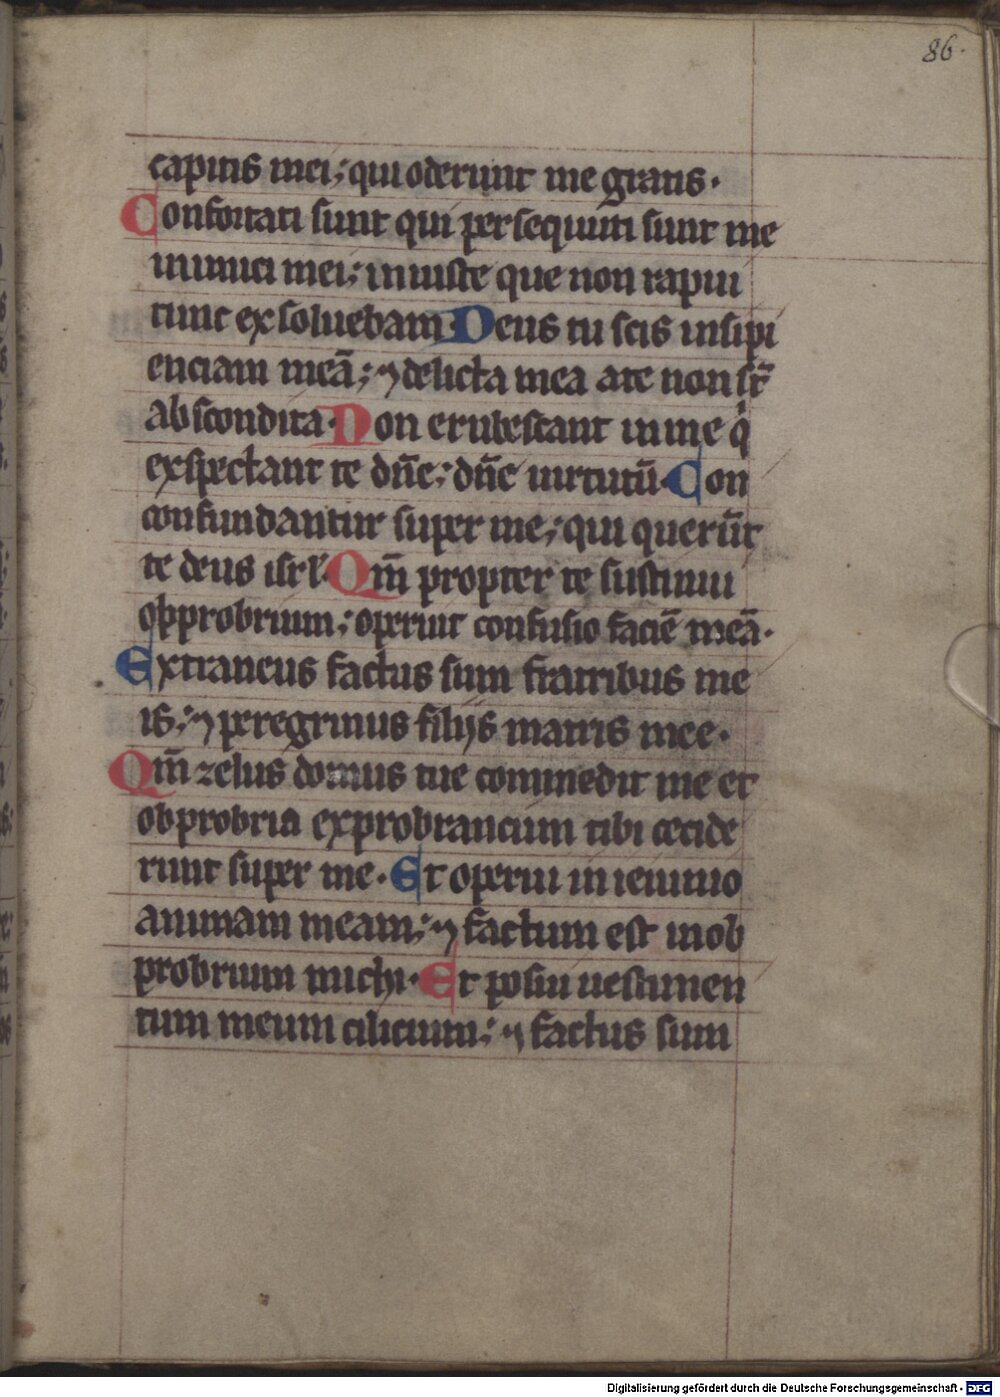 86.
capitis mei; qui oderunt me gratis.
Confortati sunt qui persequuti sunt me
inimici mei; iniuste que non rapui
tunc exsoluebam. Deus tu scis insipi
enciam meā; ⁊ delicta mea a te non sr̄
abscondita. Non erubescant in me q̇
exspectant te dn̄e; dn̄e uirtutū. Con
confundantur super me; qui querūt
te deus isrl̄. Qm̄ propter te sustinui
opprobrium; operuit confusio faciē meā.
Extraneus factus sum fratribus me
is; ⁊ peregrinus filijs matris mee.
Qm̄ zelus domus tue commedit me et
obprobria exprobrancium tibi cecide
runt super me. Et operui in ieiunio
animam meam; ⁊ factum est in ob
probrium michi. Et posui uestimen
tum meum cilicium; ⁊ factus sum
Digitalisierung gefördert durch die Deutsche Forschungsgemeinschaft - DFG